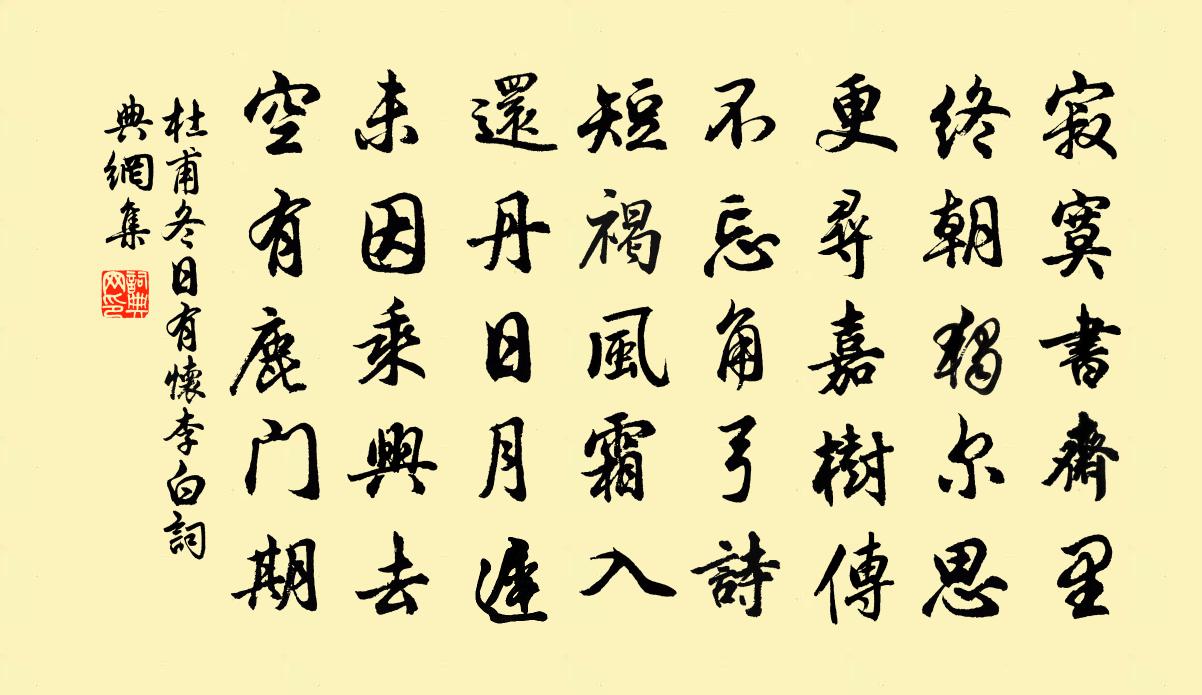 寂寞書齋里
終朝獨尔思
更尋嘉樹傳
不忘角弓詩
短褐風霜入
還丹日月遲
未因乘興去
空有鹿門期
杜甫冬日有懷李白詞
典網集
詞典網印